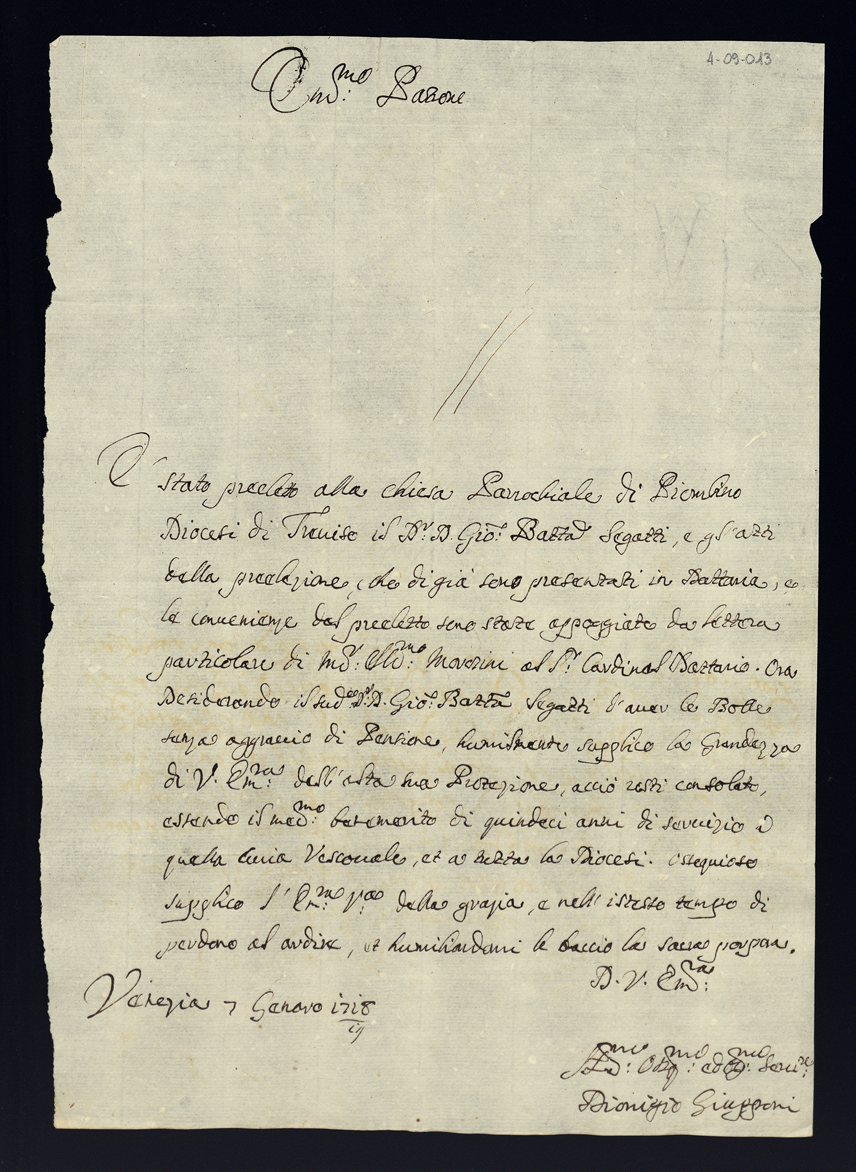 4-09-013
Em.mo Padrone
E' stato preeletto alla chiesa Parrochiale di Piombino
Diocesi di Treviso il Dr. D. Gio: Batta Segatti, e gl'atti
della preelezione, che di già sono presentati in Dattaria, e
le convenienze del preeletto sono state appoggiate da lettera
particolare di Mr. Ill.mo Morosini al Sr. Cardinal Dattario. Ora
Desiderando il sud.o Dr. D. Gio: Batta Segatti l'aver le Bolle
senza aggravio di Pensione, humilmente supplico la Grandezza
di V. Em.za dell'alta sua Protezione, acciò resti consolato,
essendo il med.mo benemerito di quindeci anni di servizio à
quella Curia Vescovale, et a tutta la Diocesi. Ossequioso
supplico l'Em.za V.a della grazia, e nell'istesso tempo di
perdono al ardire, et humiliandomi le baccio la sacra porpora.
D. V. Em.za
Venezia 7 Genaro 1718
19
Um.mo Obg.mo ed Serv.re
Dionigio Giupponi